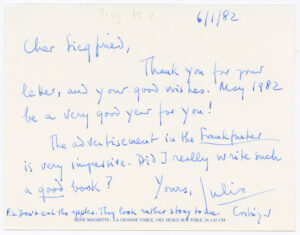 6/1/82
Cher Siegfried,
Thank you for your
letter, and your good wishes. May 1982
be a very good year for you!
The advertisement in the Frankfurter
is very impressive. Did I really write such
a good book?
Yours, Julio
P.S. Don't eat the apples. They look rather stony to me.
RENÉ MAGRITTE LA GRANDE TABLE, 1962, HUILE SUR TOILE,